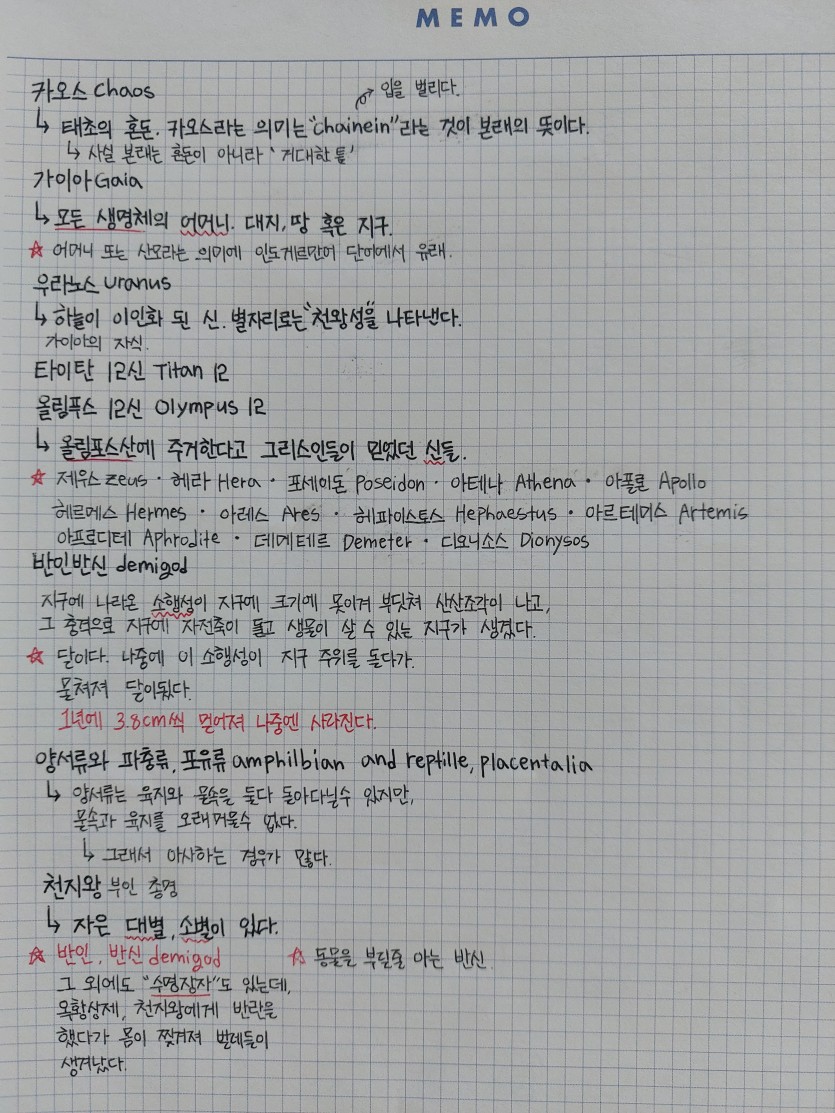 MEMO
카오스 Chaos
입을 벌리다.
↳ 태초의 혼돈. 카오스라는 의미는 "chainein"라는 것이 본래의 뜻이다.
↳ 사실 본래는 혼돈이 아니라 '거대한 틈'
가이아 Gaia
↳ 모든 생명체의 어머니. 대지, 땅 혹은 지구.
☆ 어머니 또는 산모라는 의미에 인도게르만어 단어에서 유래.
우라노스 uranus
↳ 하늘이 이인화 된 신. 별자리로는 "천왕성"을 나타낸다.
가이아의 자식.
타이탄 12신 Titan 12
올림푸스 12신 Olympus 12
↳ 올림포스산에 주거한다고 그리스인들이 믿었던 신들.
☆ 제우스 Zeus · 헤라 Hera · 포세이돈 Poseidon · 아테나 Athena · 아폴론 Apollo
헤르메스 Hermes · 아레스 Ares · 헤파이스토스 Hephaestus · 아르테미스 Artemis
아프로디테 Aphrodite · 데메테르 Demeter · 디오니소스 Dionysos
반인반신 demigod
지구에 나라온 소행성이 지구에 크기에 못이겨 부딪쳐 산산조각이 나고,
그 충격으로 지구에 자전축이 돌고 생물이 살 수 있는 지구가 생겼다.
☆ 달이다. 나중에 이 소행성이 지구 주위를 돌다가.
뭉쳐져 달이됬다.
1년에 3.8cm씩 멀어져 나중엔 사라진다.
양서류와 파충류, 포유류 amphilbian and reptille, placentalia
↳ 양서류는 육지와 물속을 둘다 돌아다닐수 있지만,
물속과 육지를 오래 머물수 없다.
↳ 그래서 아사하는 경우가 많다.
천지왕 부인 총명
↳ 자은 대별, 소별이 있다.
☆ 반인, 반신 demigod ☆ 동물을 부릴줄 아는 반신.
그 외에도 "수명장자"도 있는데,
옥황상제, 천지왕에게 반란을
했다가 몸이 찢겨져 벌레들이
생겨났다.